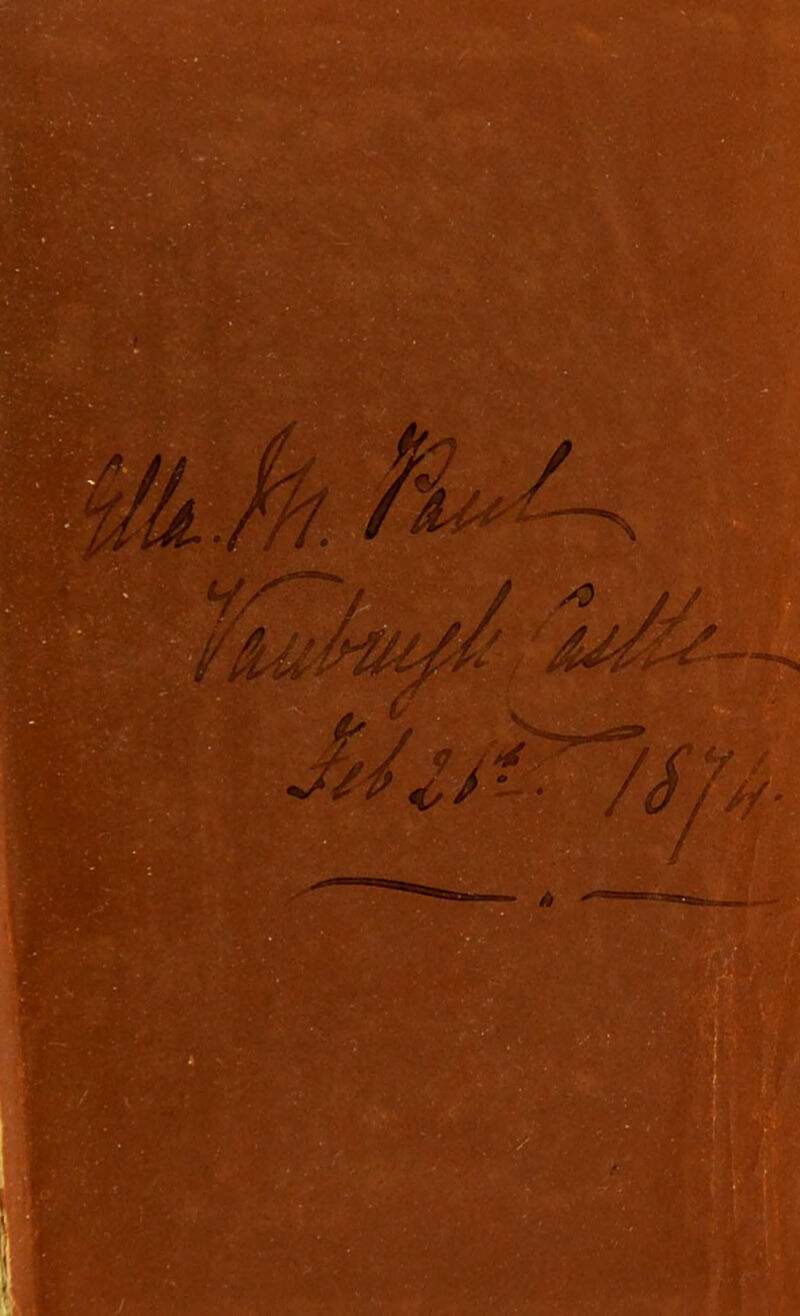 Ella. M. Paul
Vanbrugh Castle
Feb 26th. 1874.